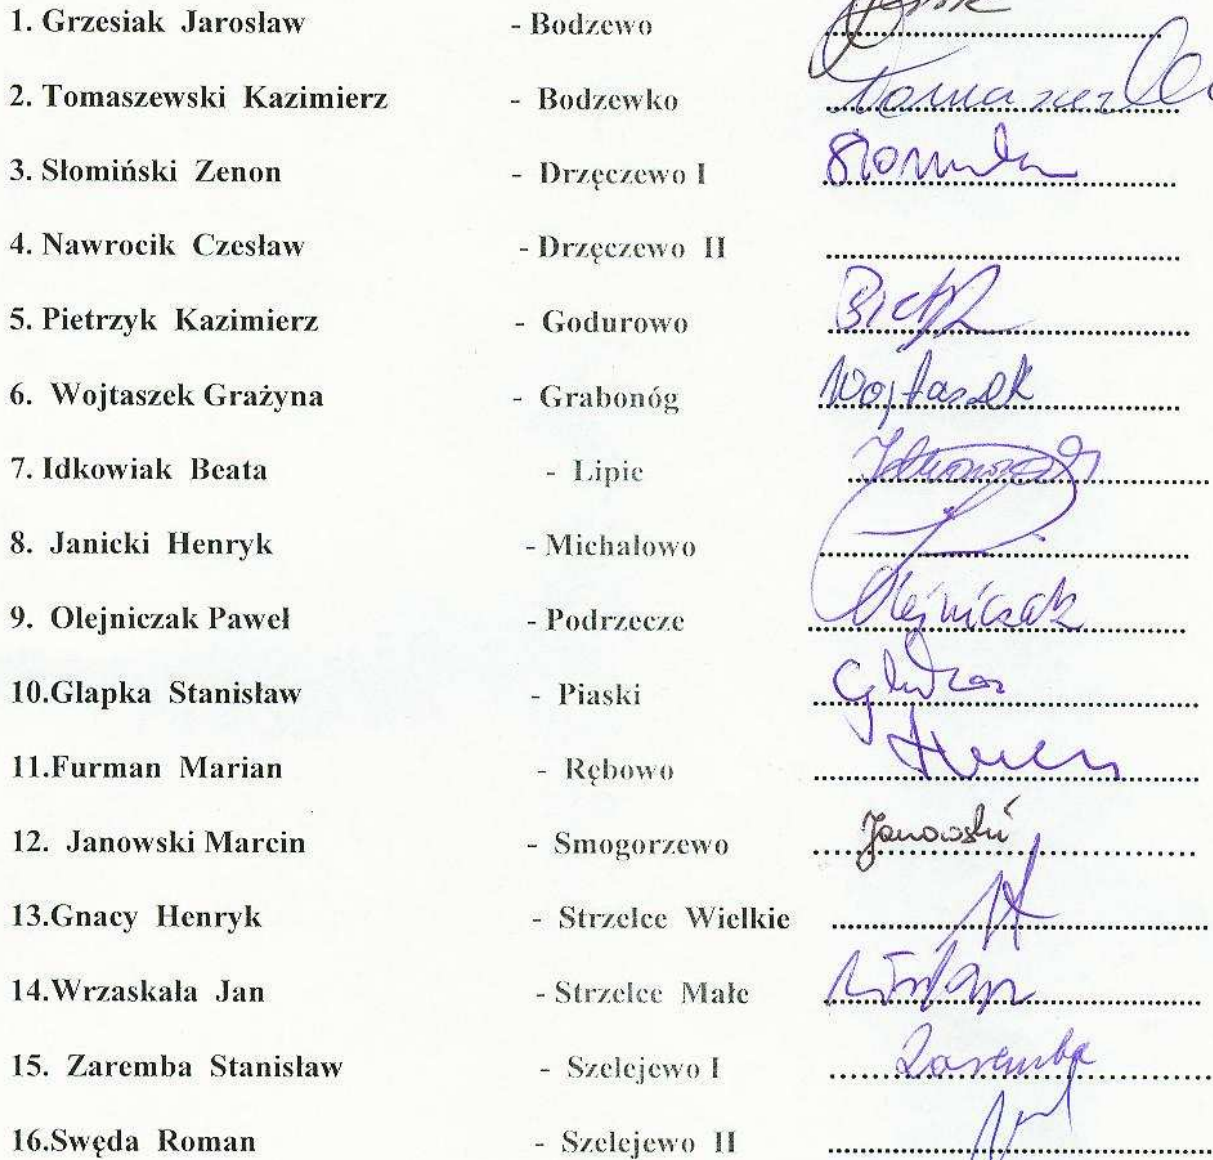 1. Grzesiak Jarosław - Bodzewo
2. Tomaszewski Kazimierz - Bodzewko
3. Słomiński Zenon - Drzęczewo I
4. Nawrocik Czesław - Drzęczewo II
5. Pietrzyk Kazimierz - Godurowo
6. Wojtaszek Grażyna - Grabonóg Wojtaszek
7. Idkowiak Beata - Lipie
8. Janicki Henryk - Michałowo
9. Olejniczak Paweł - Podrzecze Olejniczak
10.Glapka Stanisław - Piaski
11.Furman Marian - Rębowo
12. Janowski Marcin - Smogorzewo Janowski
13.Gnacy Henryk - Strzelce Wielkie
14.Wrzaskała Jan - Strzelce Małe
15. Zaremba Stanisław - Szelejewo I Zaremba
16.Swęda Roman - Szelejewo II